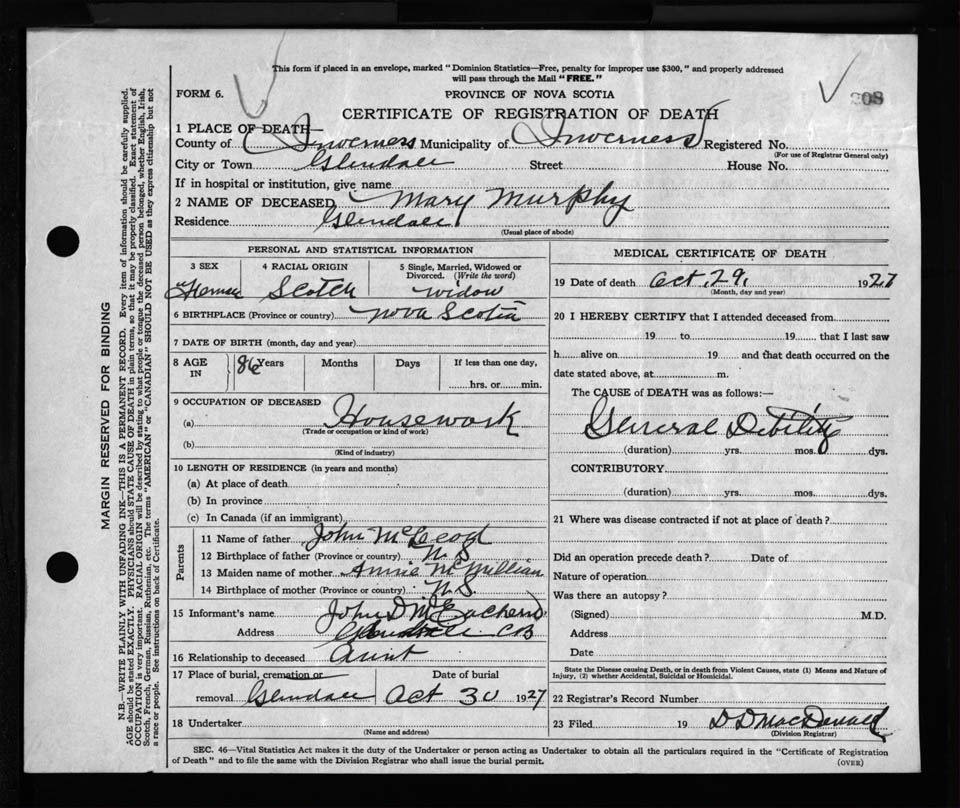 This form if placed in an envelope, marked "Dominion Statistics—Free, penalty for improper use $300," and properly addressed
will pass through the Mail "FREE."
308
FORM 6.
PROVINCE OF NOVA SCOTIA
CERTIFICATE OF REGISTRATION OF DEATH
1 PLACE OF DEATH—
County of Inverness Municipality of Inverness Registered No.
(For use of Registrar General only)
City or Town Glendale Street House No.
If in hospital or institution, give name
2 NAME OF DECEASED Mary Murphy
Residence Glendale
(Usual place of abode)
PERSONAL AND STATISTICAL INFORMATION
3 SEX 4 RACIAL ORIGIN 5 Single, Married, Widowed or
Divorced. (Write the word)
Scotch widow
6 BIRTHPLACE (Province or country) Nova Scotia
7 DATE OF BIRTH (month, day and year)
8 AGE IN 86 Years Months Days If less than one day,
hrs. or min.
9 OCCUPATION OF DECEASED
(a) Housework
(Trade or occupation or kind of work)
(b)
(Kind of industry)
10 LENGTH OF RESIDENCE (in years and months)
(a) At place of death
(b) In province
(c) In Canada (if an immigrant)
Parents
11 Name of father John McLeod
12 Birthplace of father (Province or country) N.S.
13 Maiden name of mother Annie McMillian
14 Birthplace of mother (Province or country) N.S.
15 Informant's name John D McEachern
Address Glendale CB
16 Relationship to deceased Aunt
17 Place of burial, cremation or Date of burial
removal Glendale Oct 30 1927
18 Undertaker
(Name and address)
MEDICAL CERTIFICATE OF DEATH
19 Date of death Oct. 29, 1927
(Month, day and year)
20 I HEREBY CERTIFY that I attended deceased from
19 to 19 , that I last saw
h alive on 19 and that death occurred on the
date stated above, at m.
The CAUSE OF DEATH was as follows:—
General Debility
(duration) yrs. mos. dys.
CONTRIBUTORY
(duration) yrs. mos. dys.
21 Where was disease contracted if not at place of death?
Did an operation precede death? Date of
Nature of operation
Was there an autopsy?
(Signed) M.D.
Address
Date
State the Disease causing Death, or in death from Violent Causes, state (1) Means and Nature of
Injury, (2) whether Accidental, Suicidal or Homicidal.
22 Registrar's Record Number
23 Filed 19 D D MacDonald
(Division Registrar)
SEC. 46—Vital Statistics Act makes it the duty of the Undertaker or person acting as Undertaker to obtain all the particulars required in the "Certificate of Registration
of Death" and to file the same with the Division Registrar who shall issue the burial permit.
(OVER)
MARGIN RESERVED FOR BINDING
N.B.—WRITE PLAINLY WITH UNFADING INK—THIS IS A PERMANENT RECORD. Every item of information should be carefully supplied.
AGE should be stated EXACTLY. PHYSICIANS should STATE CAUSE OF DEATH in plain terms, so that it may be properly classified. Exact statement of
OCCUPATION is very important. RACIAL ORIGIN will be described by stating to what people or tongue the deceased person belonged, whether English, Irish,
Scotch, French, German, Russian, Ruthenian, etc. The terms "AMERICAN" or "CANADIAN" SHOULD NOT BE USED as they express citizenship but not
a race or people. See instructions on back of Certificate.